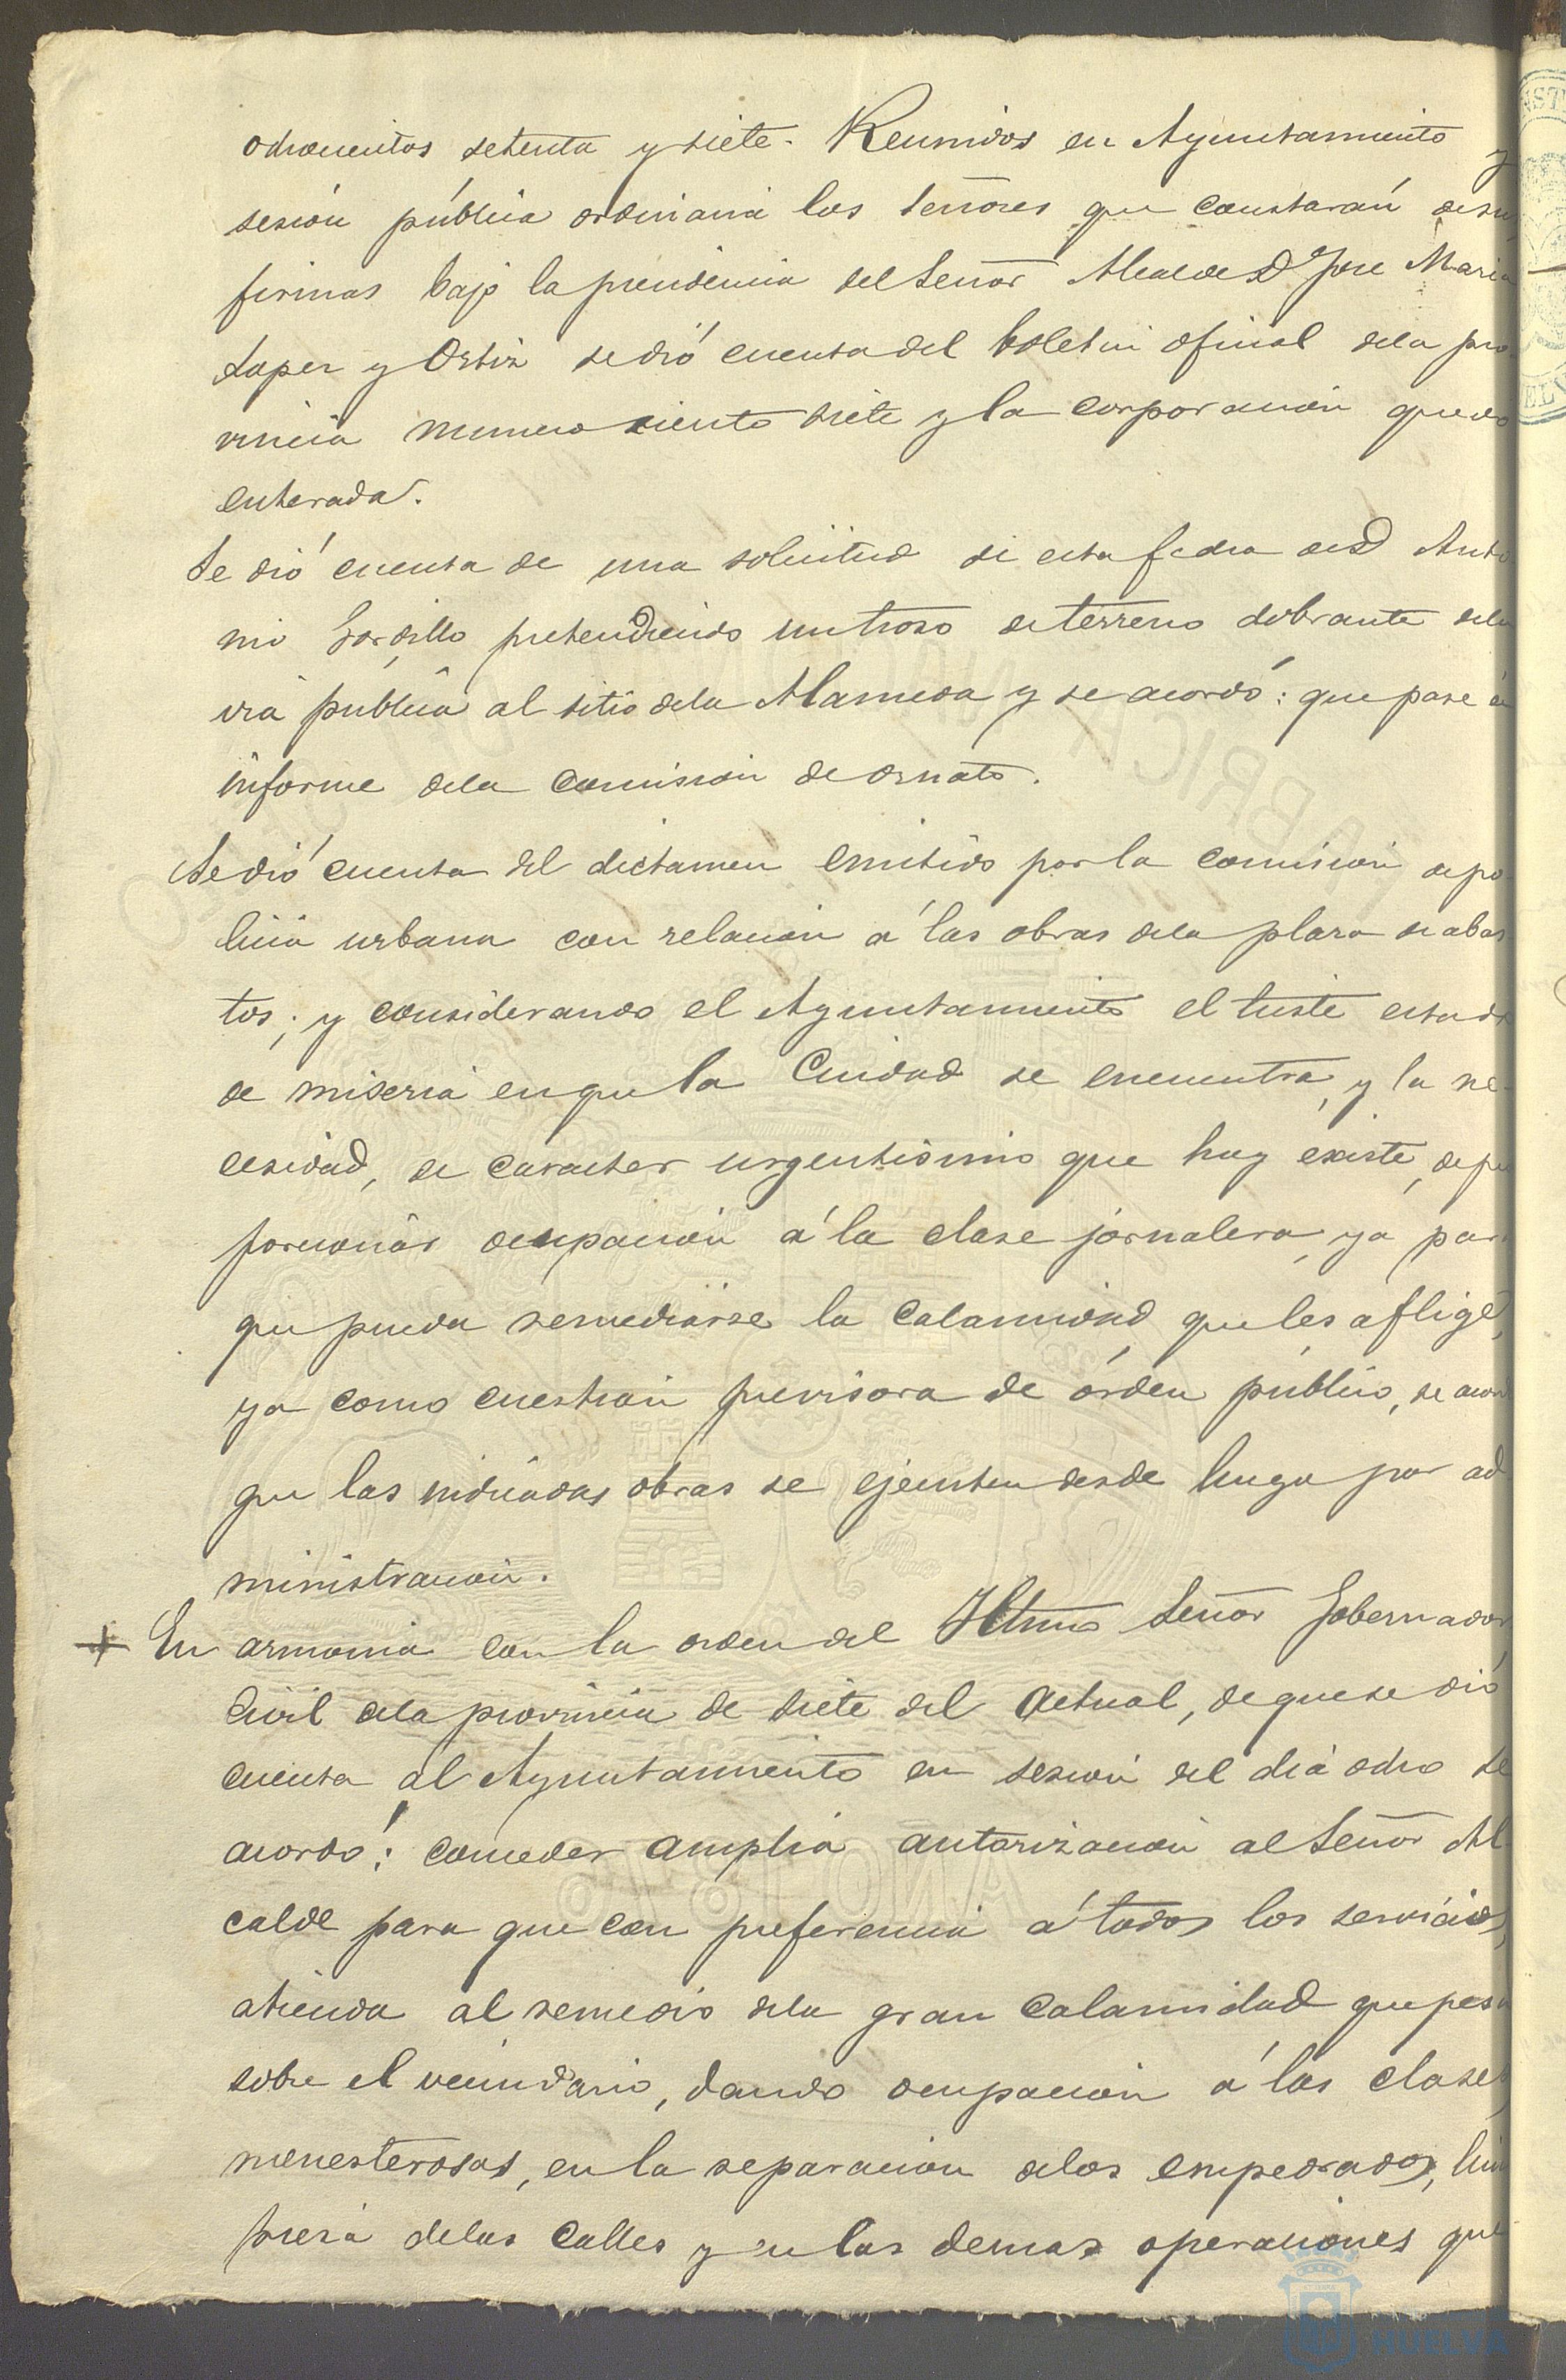 ochocientos setenta y siete. Reunidos en Ayuntamiento y
sesión pública ordinaria los señores que constarán desus
firmas bajo la presidencia del Señor Alcalde D Jose Maria
Lopez y Ortiz se dió cuenta del boletin oficial dela pro
vincia numero ciento siete y la corporacion quedo
enterada.
Se dió cuenta de una solicitud de esta fecha de D Anto
nio Gordillo pretendiendo un trozo de terreno sobrante dela
via pública al sitio dela Alameda y se acordó: que pase á
informe dela comision de ornato.
Se dió cuenta del dictamen emitido por la comision de po
licia urbana con relacion á las obras dela plaza de abas
tos; y considerando el Ayuntamiento el triste estado
de miseria en que la Ciudad se encuentra, y la ne-
cesidad, de caracter urgentisimo que hoy existe, de pro
porcionar ocupacion á la clase jornalera, ya para
que pueda remediarse la calamidad que les aflige,
ya como cuestion previsora de órden público, se acordó
que las indicadas obras se ejecuten desde luego por ad
ministracion.
+ En armonia con la orden del Iltmo Señor Gobernador
Civil dela provincia de siete del actual, de que se dió
cuenta al Ayuntamiento en sesion del dia ocho se
acordó: conceder amplia autorizacion al Señor Al
calde para que con preferencia á todos los servicios,
atienda al remedio dela gran calamidad que pesa
sobre el vecindario, dando ocupacion á las clases
menesterosas, en la reparacion delos empedrados, lim
pieza delas calles y en las demas operaciones que
HUELVA